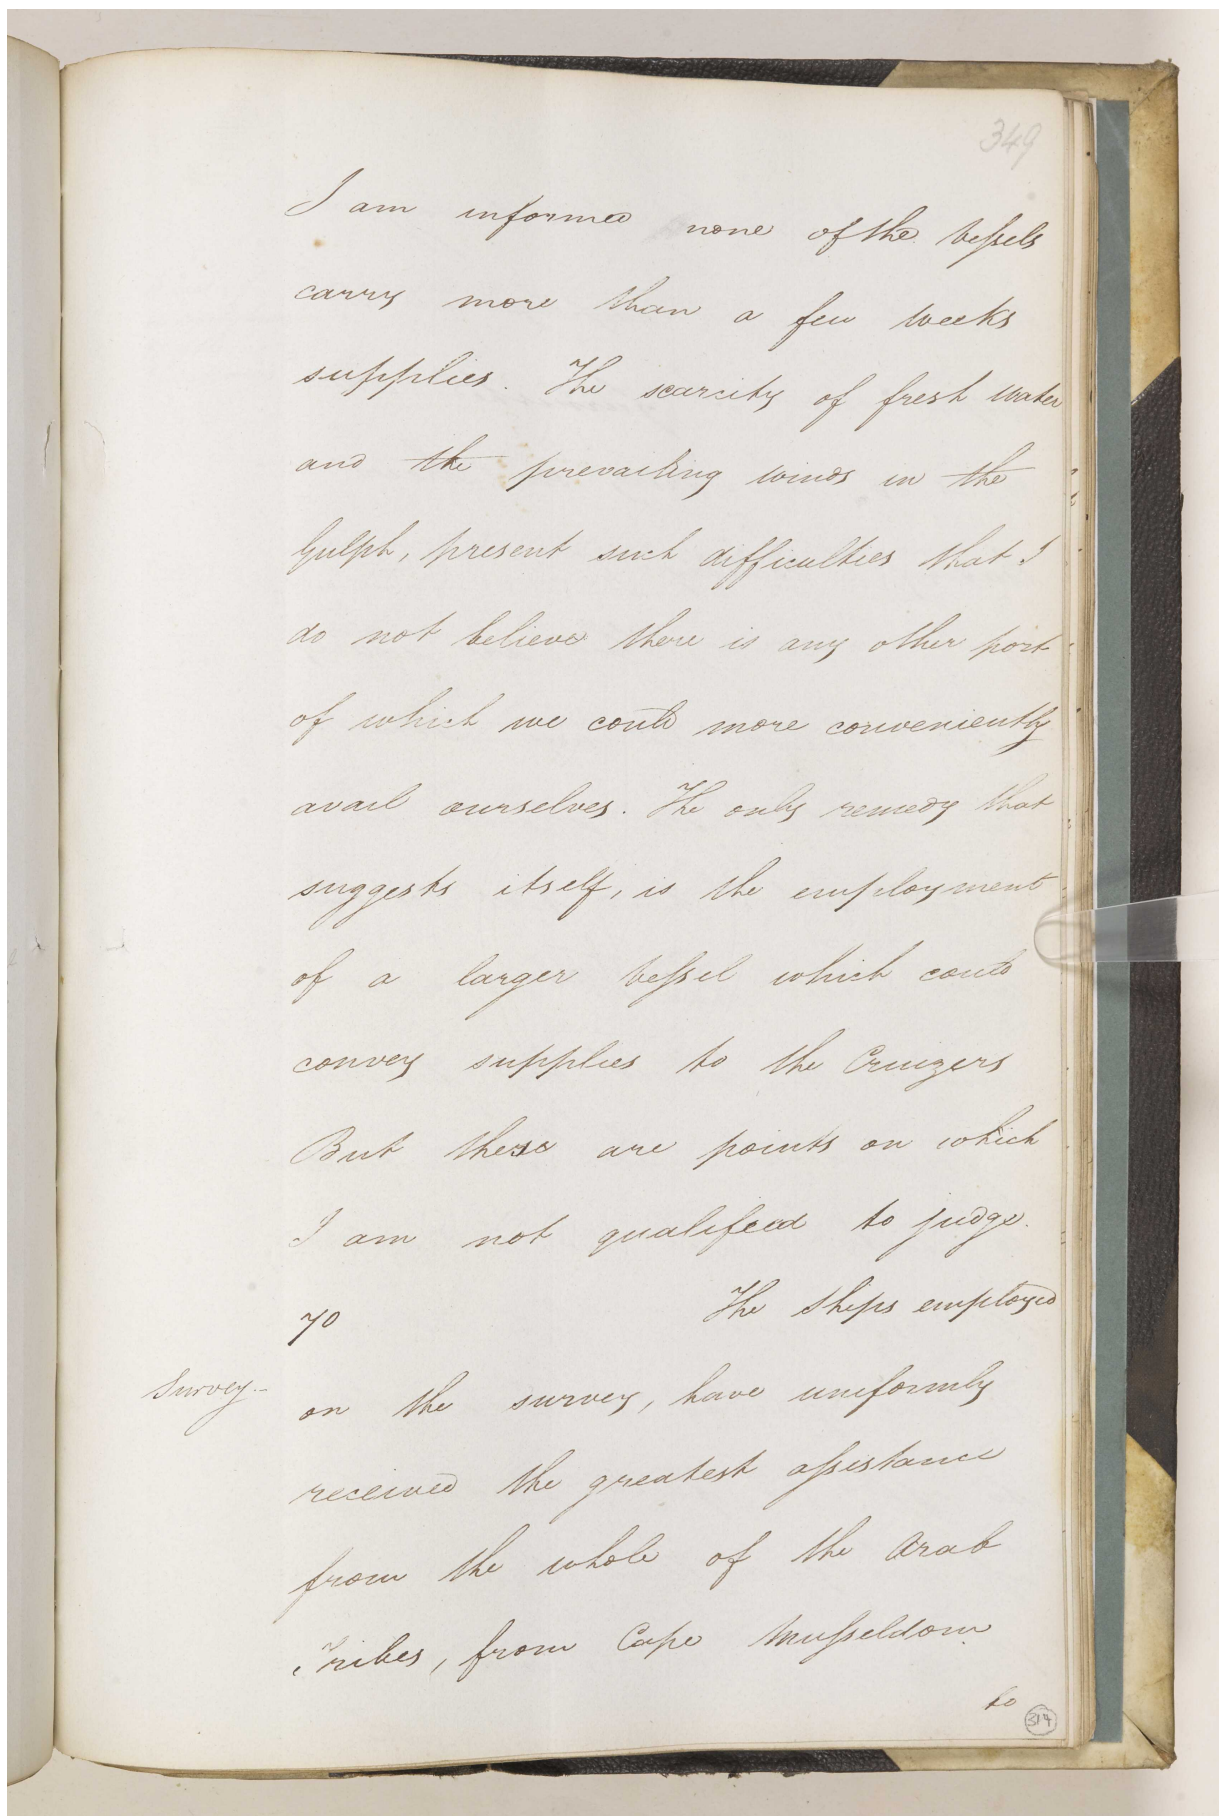 349
I am informed none of the Vessels
carry more than a few weeks
supplies. The scarcity of fresh water
and the prevailing winds in the
Gulph, present such difficulties that I
do not believe there is any other port
of which we could more conveniently
avail ourselves. The only remedy that
suggests itself, is the employment
of a larger Vessel which could
convey supplies to the Cruizers
But these are points on which
I am not qualifeed to judge.
70 The Ships employed
Survey.-
on the survey, have uniformly
received the greatest assistance
from the whole of the Arab
Tribes, from Cape Musseldom
to
314